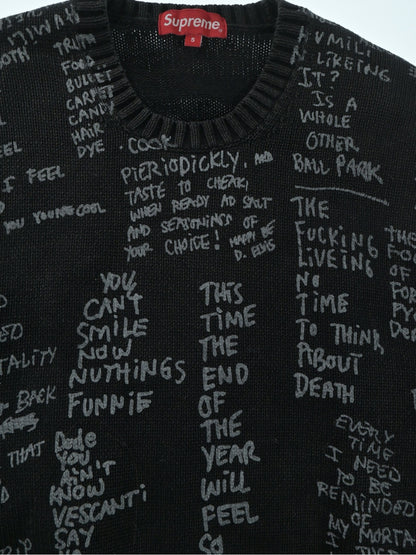 Supreme
S
TRUTH
FOOD
BULLET
CARPET
CANDY
HAIR
DYE
COOK
PIERIODICKLY, AND
TASTE TO CHEAK,
WHEN READY AD SALT
AND SEATONINGS OF
YOUR CHOICE! HAPPY BE
D. ELVIS
HUMILI
N LIKEING
IT?
IS A
WHOLE
OTHER
BALL PARK
THE
FUCKING
LIVEING
NO
TIME
TO THINK
ABOUT
DEATH
I FEEL
YOU YOUNE COOL
YOU
CAN'T
SMILE
NOW
NUTHINGS
FUNNIE
THIS
TIME
THE
END
OF
THE
YEAR
WILL
FEEL
SO
TALITY
BACK
THAT
Dude
YOU
AIN'T
KNOW
VESCANTI
SAY
EVERY
TIME
I NEED
TO BE
REMINDED
OF
MY MORTA
THE
FOO
OF
FOR